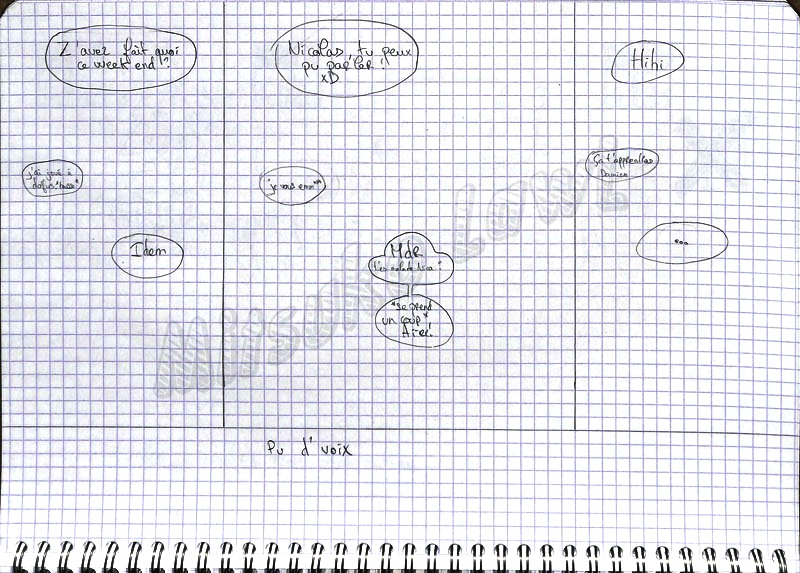 Z'avez fait quoi
ce week end !?
j'ai joué à
dofus *tousse*
Idem
Nicolas, tu peux
pu parler !
xD
*je vous emm***
MdR
T'es malade
*se prend
un coup*
Aïe!
Hihi
Ça t'apprendras
Damien
...
Pu d'voix